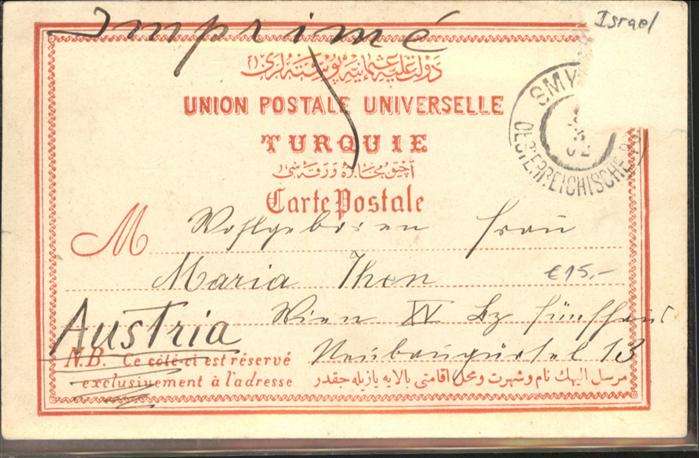 Imprimé
Israel
دولت عليه عثمانيه پوسته لرى
UNION POSTALE UNIVERSELLE
TURQUIE
آچيق مخابره ورقه سى
Carte Postale
SMY
OESTERREICHISCHE
M Wohlgeboren Frau
Maria Thon
€15,-
Wien XV Bz Fünfhaus
Austria
Neubaugürtel 13
N.B. Ce côté-ci est réservé
exclusivement à l'adresse
مرسل اليهك نام و شهرت و محل اقامتى بالايه يازيله جقدر